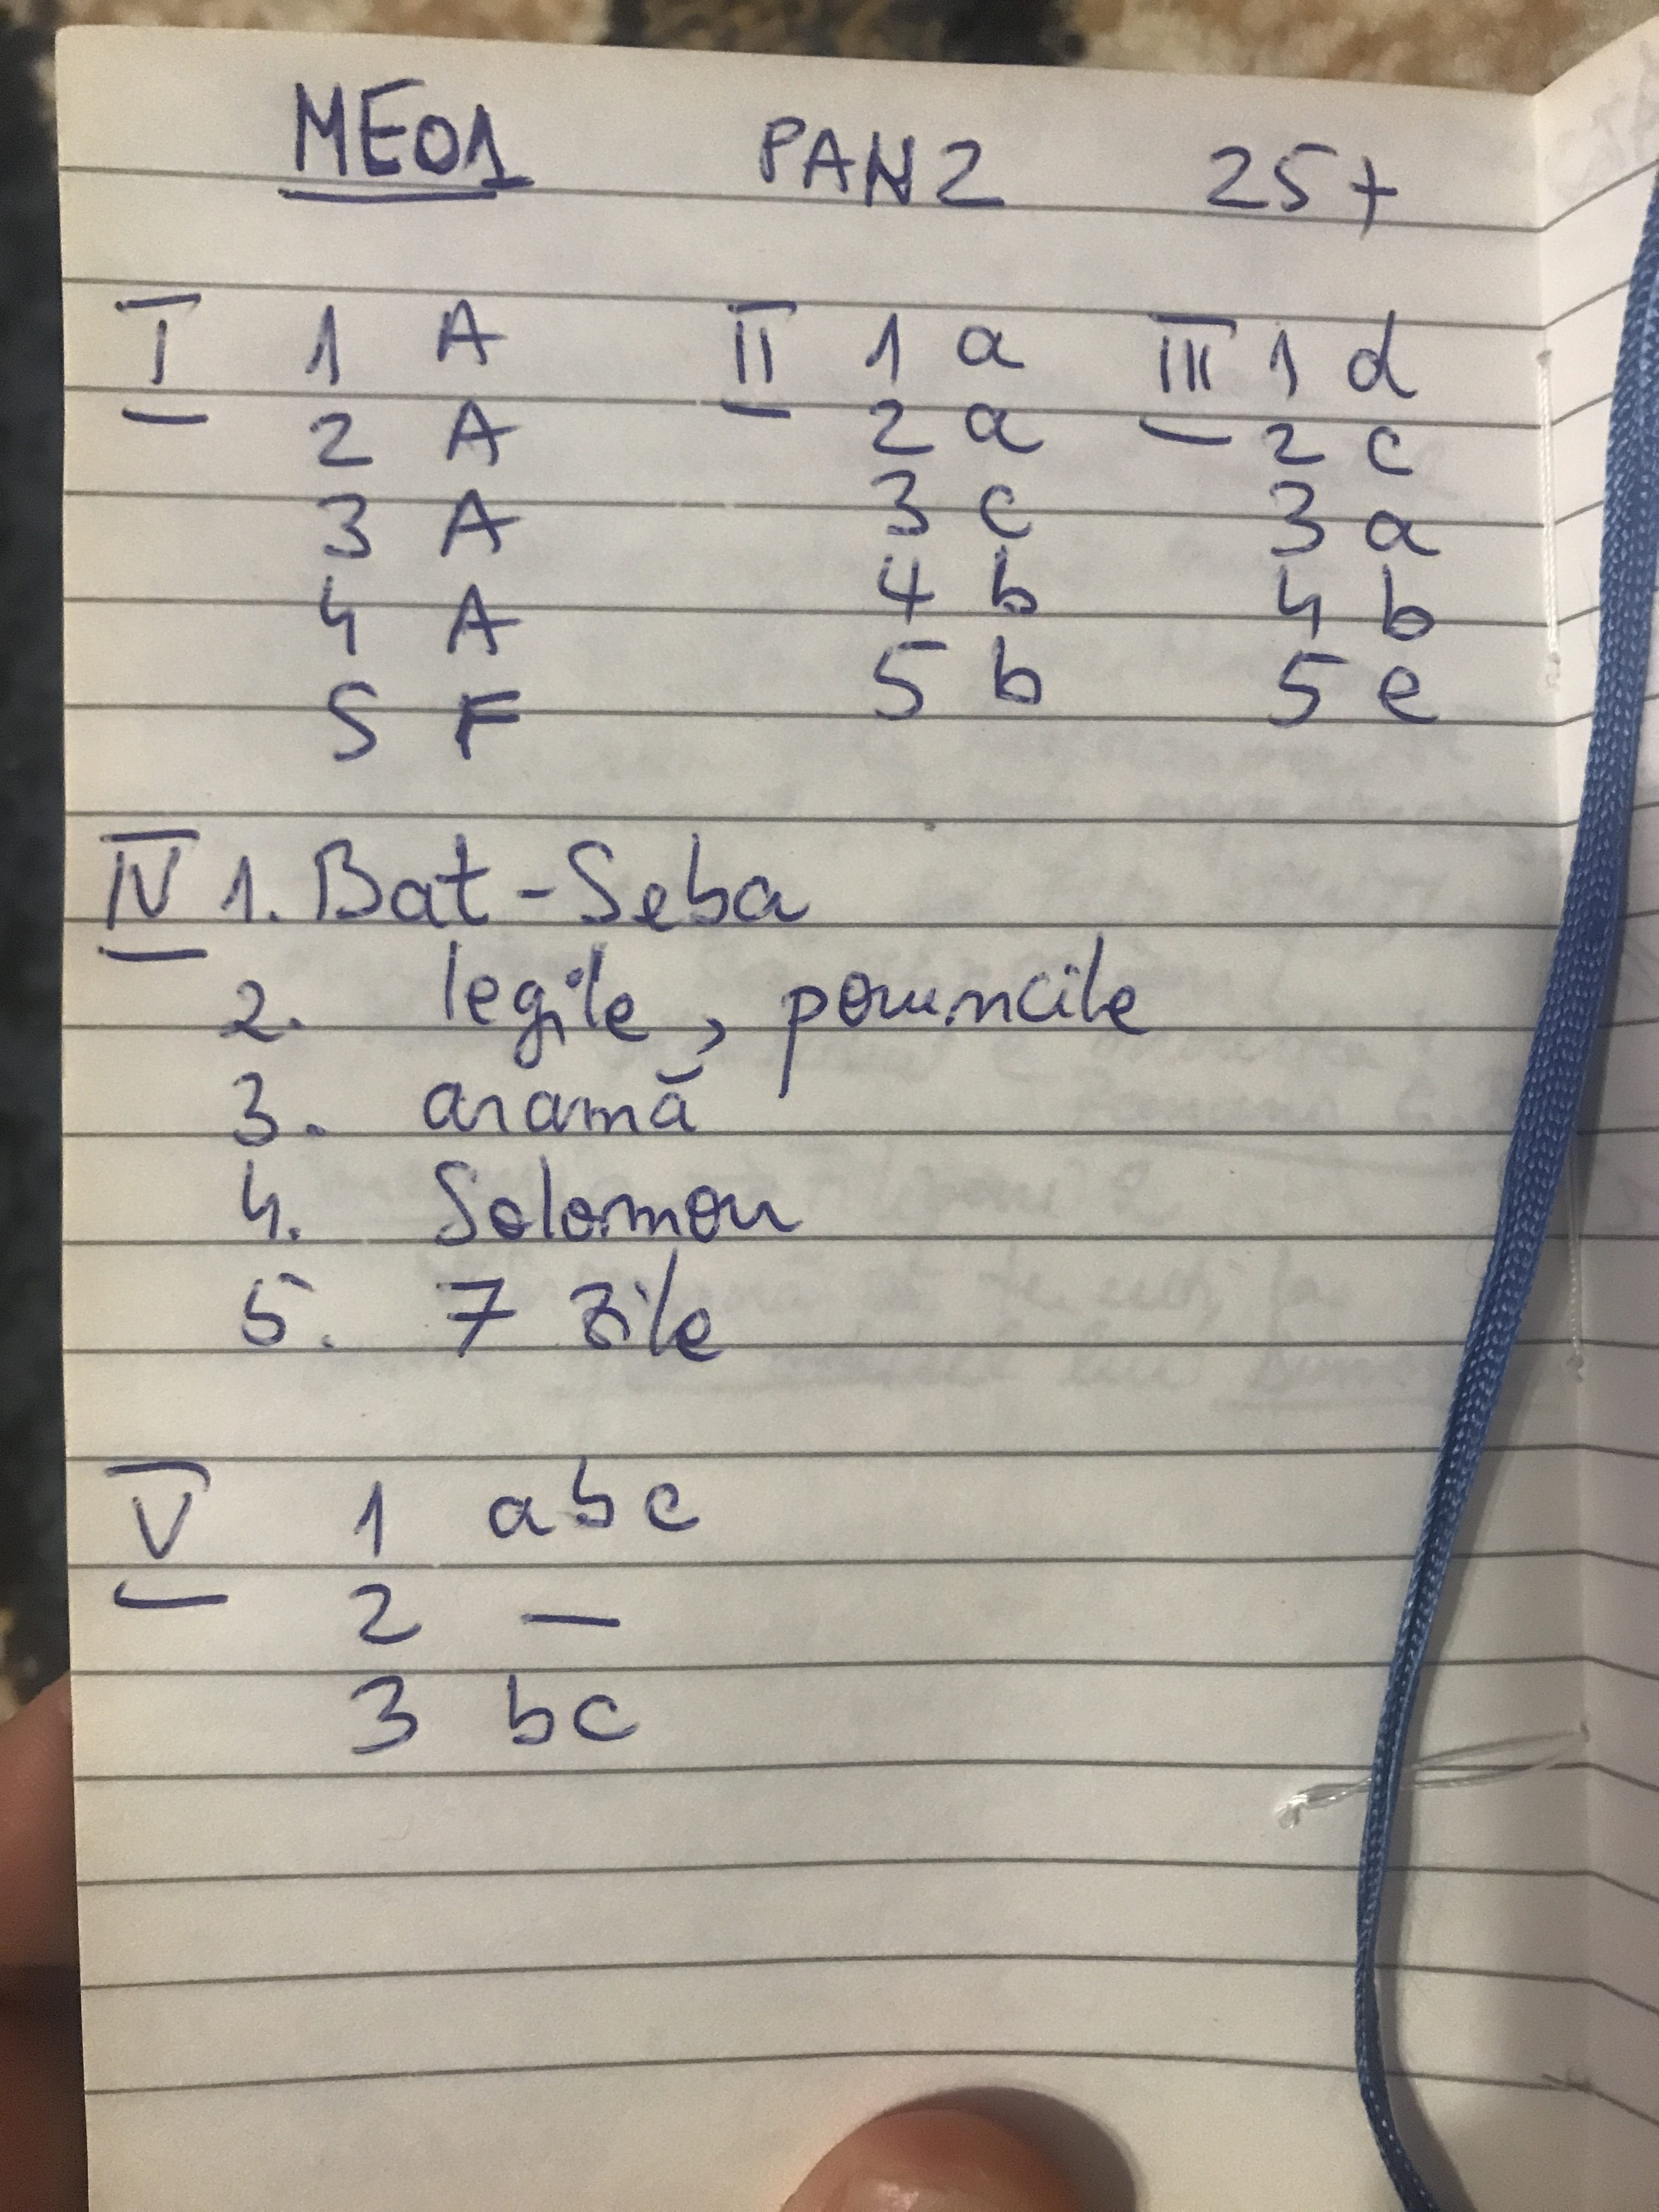 ME01 PAN2 25+
I 1 A II 1 a III 1 d
2 A 2 a 2 c
3 A 3 c 3 a
4 A 4 b 4 b
5 F 5 b 5 e
IV 1. Bat-Seba
2. legile, poruncile
3. aramă
4. Solomon
5. 7 zile
V 1 abc
2 —
3 bc